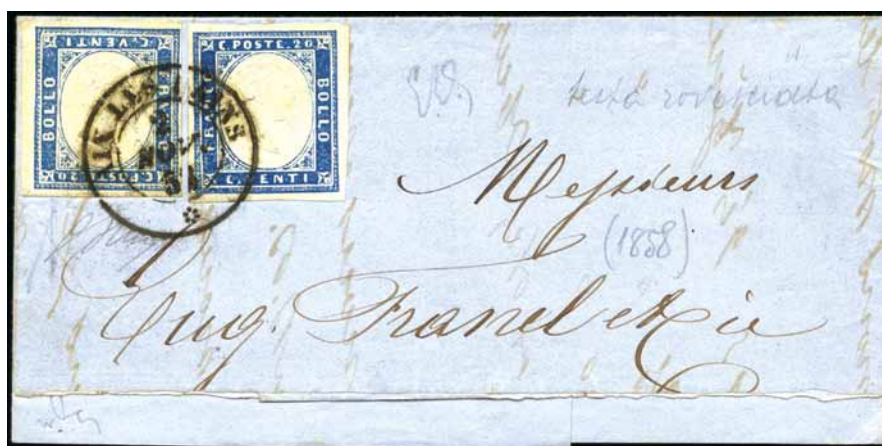 C. VENTI
BOLLO
FRANCO
C. POSTE. 20
C. POSTE. 20
FRANCO
BOLLO
C. VENTI
AIX LES BAINS
NOV.
testa rovesciata
Messieurs
(1858)
Eug. Franel et Cie